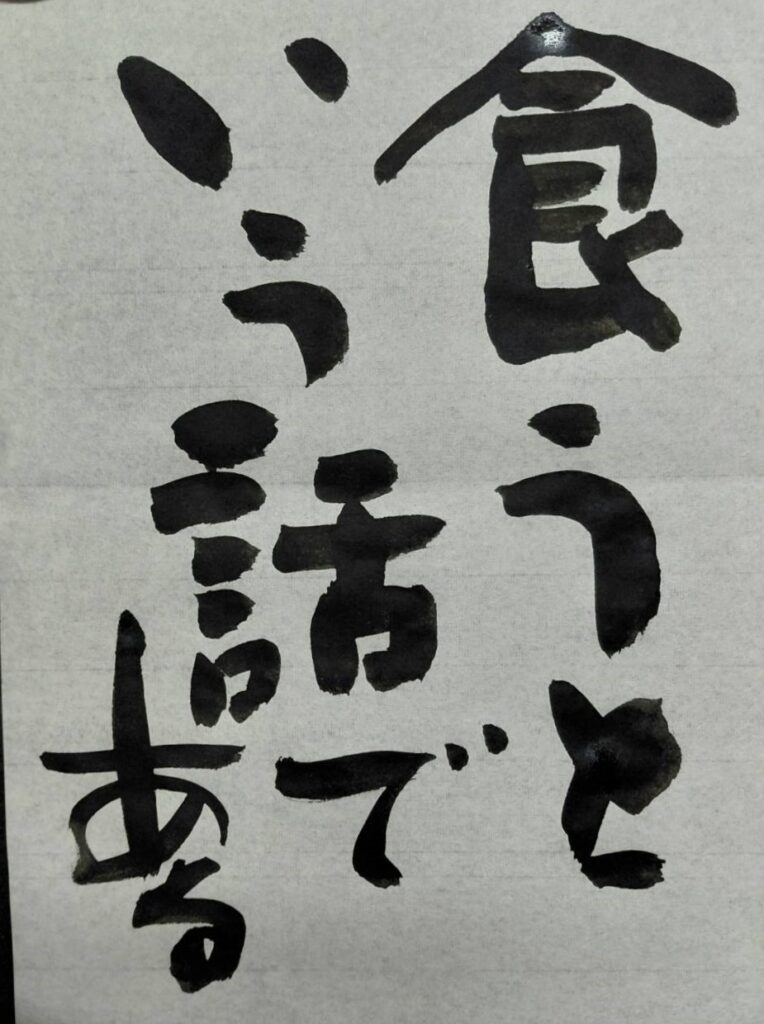 食うと
いう話で
ある